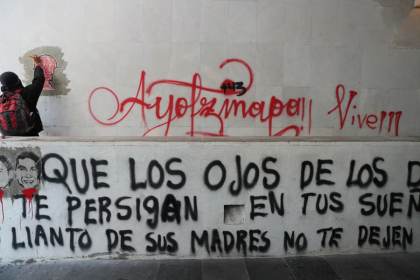 +43
Ayotzinapa!! Vive!!!
QUE LOS OJOS DE LOS D
TE PERSIGAN EN TUS SUEÑ
LLANTO DE SUS MADRES NO TE DEJEN